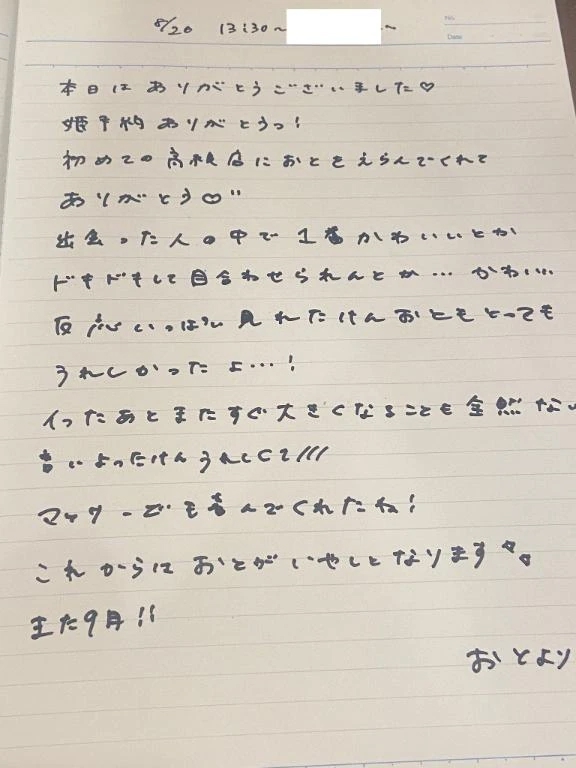 8/20 13:30~ ~
No.
Date
本日はありがとうございました♡
姫予約ありがとうっ!
初めての高級店におとをえらんでくれて
ありがとう♡"
出会った人の中で1番かわいいとか
ドキドキして目合わせられんとか…かわい…
反応いっぱい見れたけんおともとっても
うれしかったよ…!
イったあとまたすぐ大きくなることも全然ない
言いよったけんうれしくて///
マッサージも喜んでくれたね!
これからはおとがいやしとなります
また9月!!
おとより